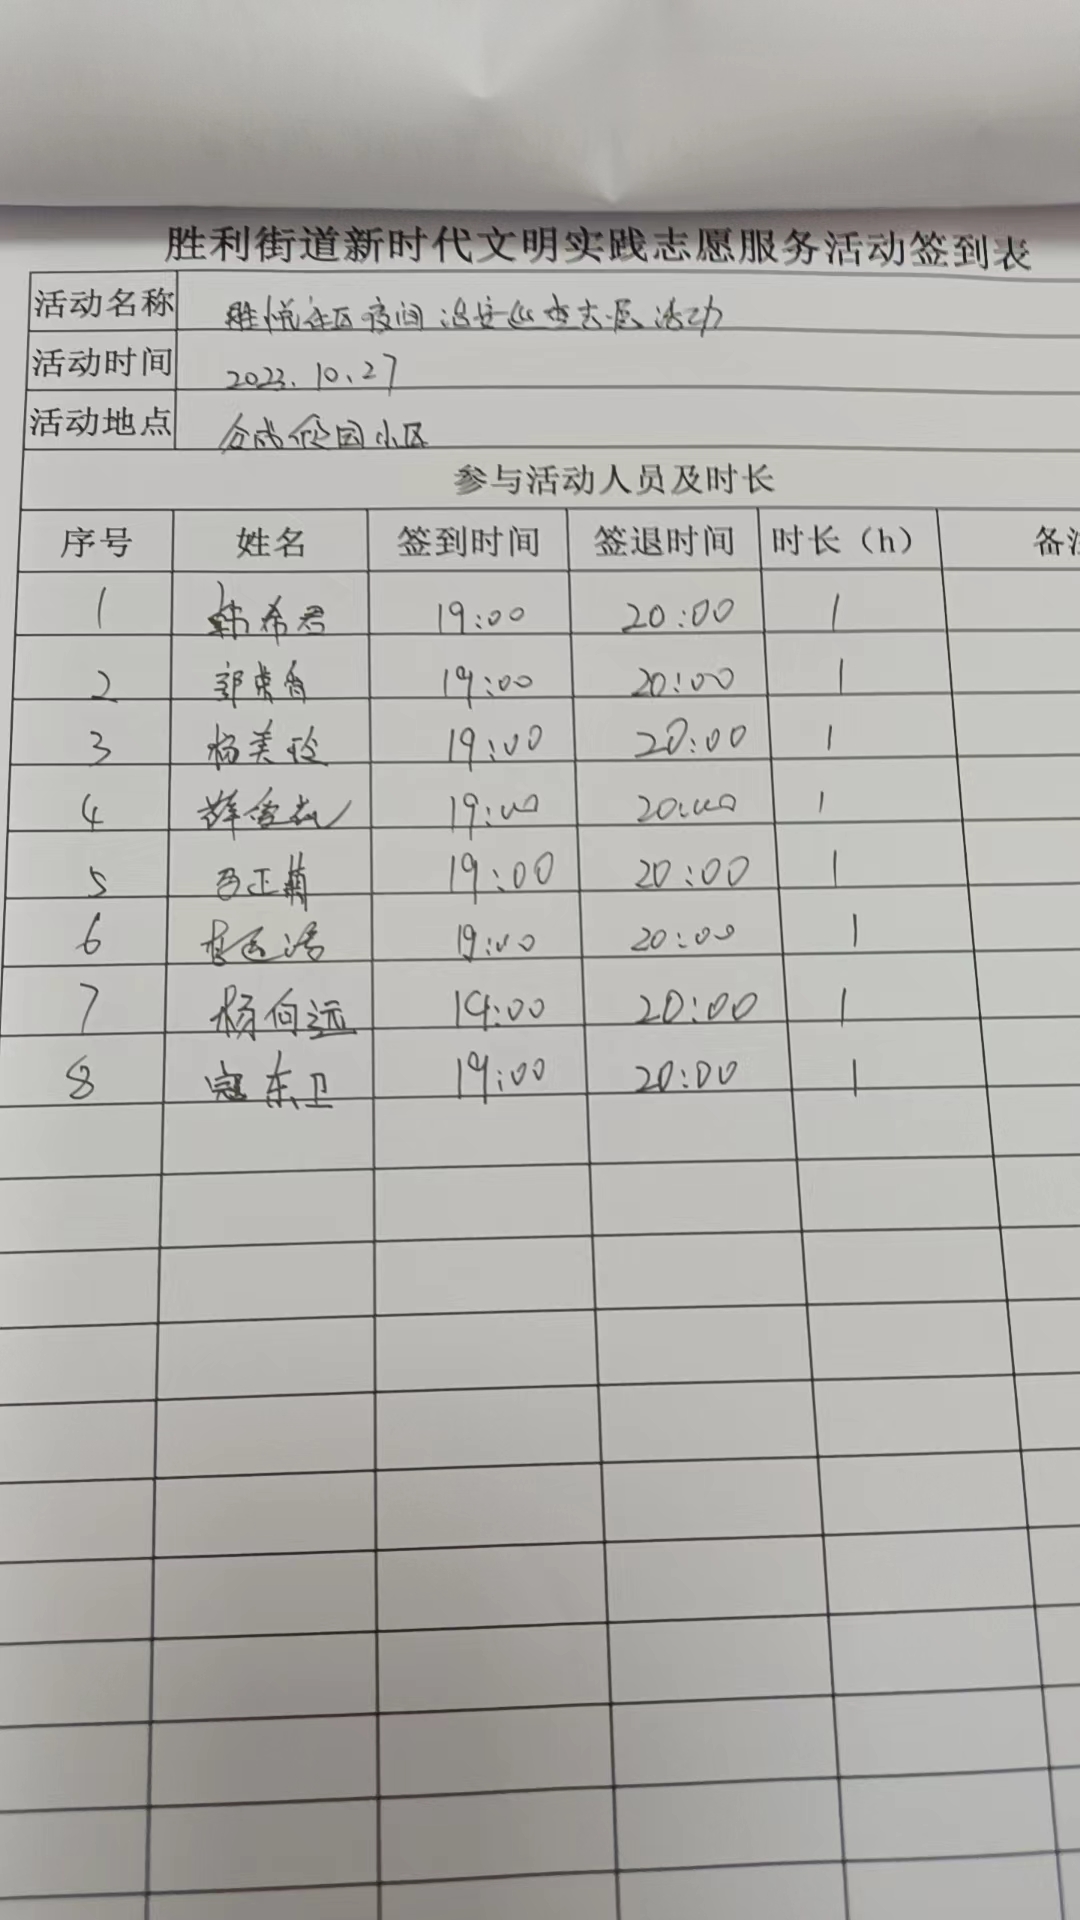 胜利街道新时代文明实践志愿服务活动签到表
活动名称 胜悦社区夜间治安巡查志愿活动
活动时间 2023.10.27
活动地点 小区
参与活动人员及时长
序号 姓名 签到时间 签退时间 时长（h） 备
1 韩希君 19:00 20:00 1
2 郭 19:00 20:00 1
3 杨美玲 19:00 20:00 1
4 薛雪 19:00 20:00 1
5 正 19:00 20:00 1
6 19:00 20:00 1
7 杨向远 19:00 20:00 1
8 寇东卫 19:00 20:00 1